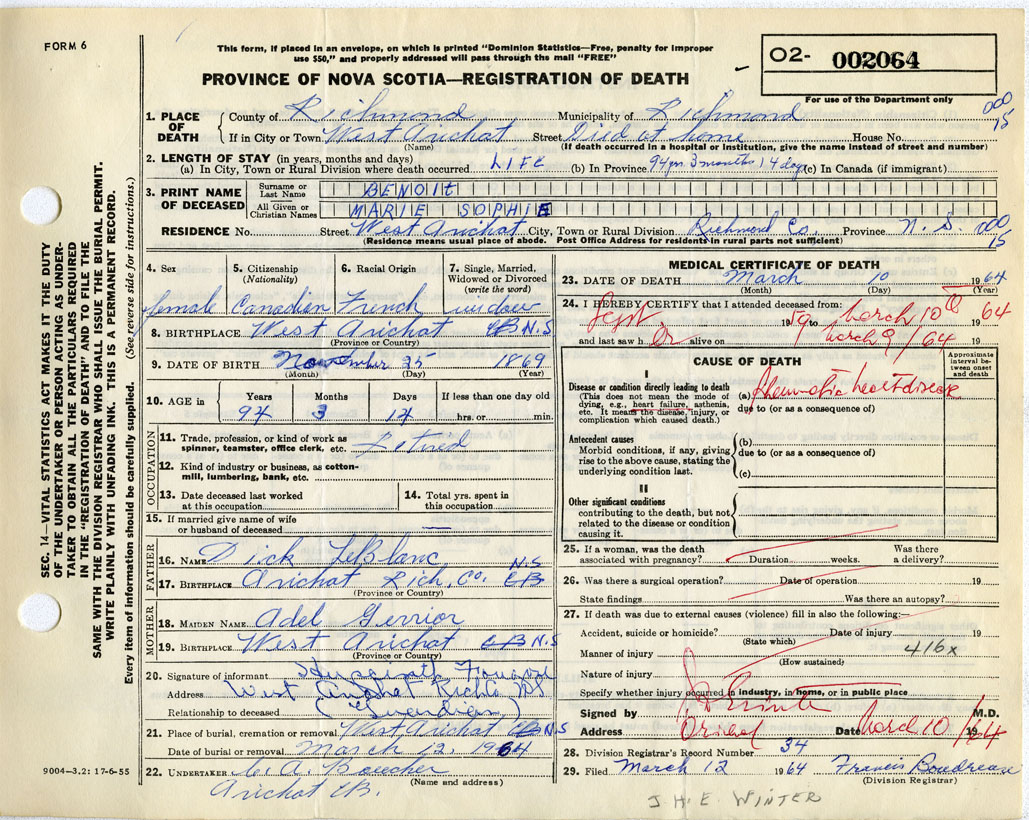 FORM 6
This form, if placed in an envelope, on which is printed "Dominion Statistics—Free, penalty for improper
use $50," and properly addressed will pass through the mail "FREE"
PROVINCE OF NOVA SCOTIA—REGISTRATION OF DEATH
O2- 002064
For use of the Department only
1. PLACE OF DEATH County of Richmond Municipality of Richmond 000 15
If in City or Town West Arichat Street Died at home House No.
(Name) (If death occurred in a hospital or institution, give the name instead of street and number)
2. LENGTH OF STAY (in years, months and days)
(a) In City, Town or Rural Division where death occurred LIFE (b) In Province 94 yrs 3 months 14 days (c) In Canada (if immigrant)
3. PRINT NAME OF DECEASED
Surname or Last Name BENOIT
All Given or Christian Names MARIE SOPHIE
RESIDENCE No. Street West Arichat City, Town or Rural Division Richmond Co. Province N. S. 000 15
(Residence means usual place of abode. Post Office Address for residents in rural parts not sufficient)
SEC. 14—VITAL STATISTICS ACT MAKES IT THE DUTY
OF THE UNDERTAKER OR PERSON ACTING AS UNDER-
TAKER TO OBTAIN ALL THE PARTICULARS REQUIRED
IN THE "REGISTRATION OF DEATH" AND TO FILE THE
SAME WITH THE DIVISION REGISTRAR WHO SHALL ISSUE THE BURIAL PERMIT.
WRITE PLAINLY WITH UNFADING INK. THIS IS A PERMANENT RECORD.
Every item of information should be carefully supplied. (See reverse side for instructions.)
4. Sex female
5. Citizenship (Nationality) Canadian
6. Racial Origin French
7. Single, Married, Widowed or Divorced (write the word) widow
8. BIRTHPLACE West Arichat CB N.S
(Province or Country)
9. DATE OF BIRTH November 25 1869
(Month) (Day) (Year)
10. AGE in Years 94 Months 3 Days 14 If less than one day old hrs. or min.
OCCUPATION
11. Trade, profession, or kind of work as spinner, teamster, office clerk, etc. Retired
12. Kind of industry or business, as cotton-mill, lumbering, bank, etc.
13. Date deceased last worked at this occupation
14. Total yrs. spent in this occupation
15. If married give name of wife or husband of deceased —
FATHER
16. NAME Dick LeBlanc
17. BIRTHPLACE Arichat Rich. Co. CB N.S
(Province or Country)
MOTHER
18. MAIDEN NAME Adel Gerrior
19. BIRTHPLACE West Arichat CB N.S
(Province or Country)
20. Signature of informant
Address West Arichat
Relationship to deceased (Guardian)
21. Place of burial, cremation or removal West Arichat CB N.S
Date of burial or removal March 12, 1964
22. UNDERTAKER C. A. Boucher
Arichat CB. (Name and address)
9004—3.2: 17-6-55
MEDICAL CERTIFICATE OF DEATH
23. DATE OF DEATH March 10 1964
(Month) (Day) (Year)
24. I HEREBY CERTIFY that I attended deceased from:
Sept 1959 to March 10th 1964
and last saw h er alive on March 9/64 19
CAUSE OF DEATH
Approximate interval between onset and death
I
Disease or condition directly leading to death
(This does not mean the mode of dying, e.g., heart failure, asthenia, etc. It means the disease, injury, or complication which caused death.)
(a) Rheumatic heart disease
due to (or as a consequence of)
Antecedent causes
Morbid conditions, if any, giving rise to the above cause, stating the underlying condition last.
(b)
due to (or as a consequence of)
(c)
II
Other significant conditions
contributing to the death, but not related to the disease or condition causing it.
25. If a woman, was the death associated with pregnancy? Duration weeks. Was there a delivery?
26. Was there a surgical operation? Date of operation 19
State findings Was there an autopsy?
27. If death was due to external causes (violence) fill in also the following:—
Accident, suicide or homicide? Date of injury 19
(State which)
Manner of injury 416x
(How sustained)
Nature of injury
Specify whether injury occurred in industry, in home, or in public place
Signed by M.D.
Address Arichat Date March 10/ 1964
28. Division Registrar's Record Number 34
29. Filed March 12 1964 Francis Boudreau
(Division Registrar)
J. H. E. WINTER